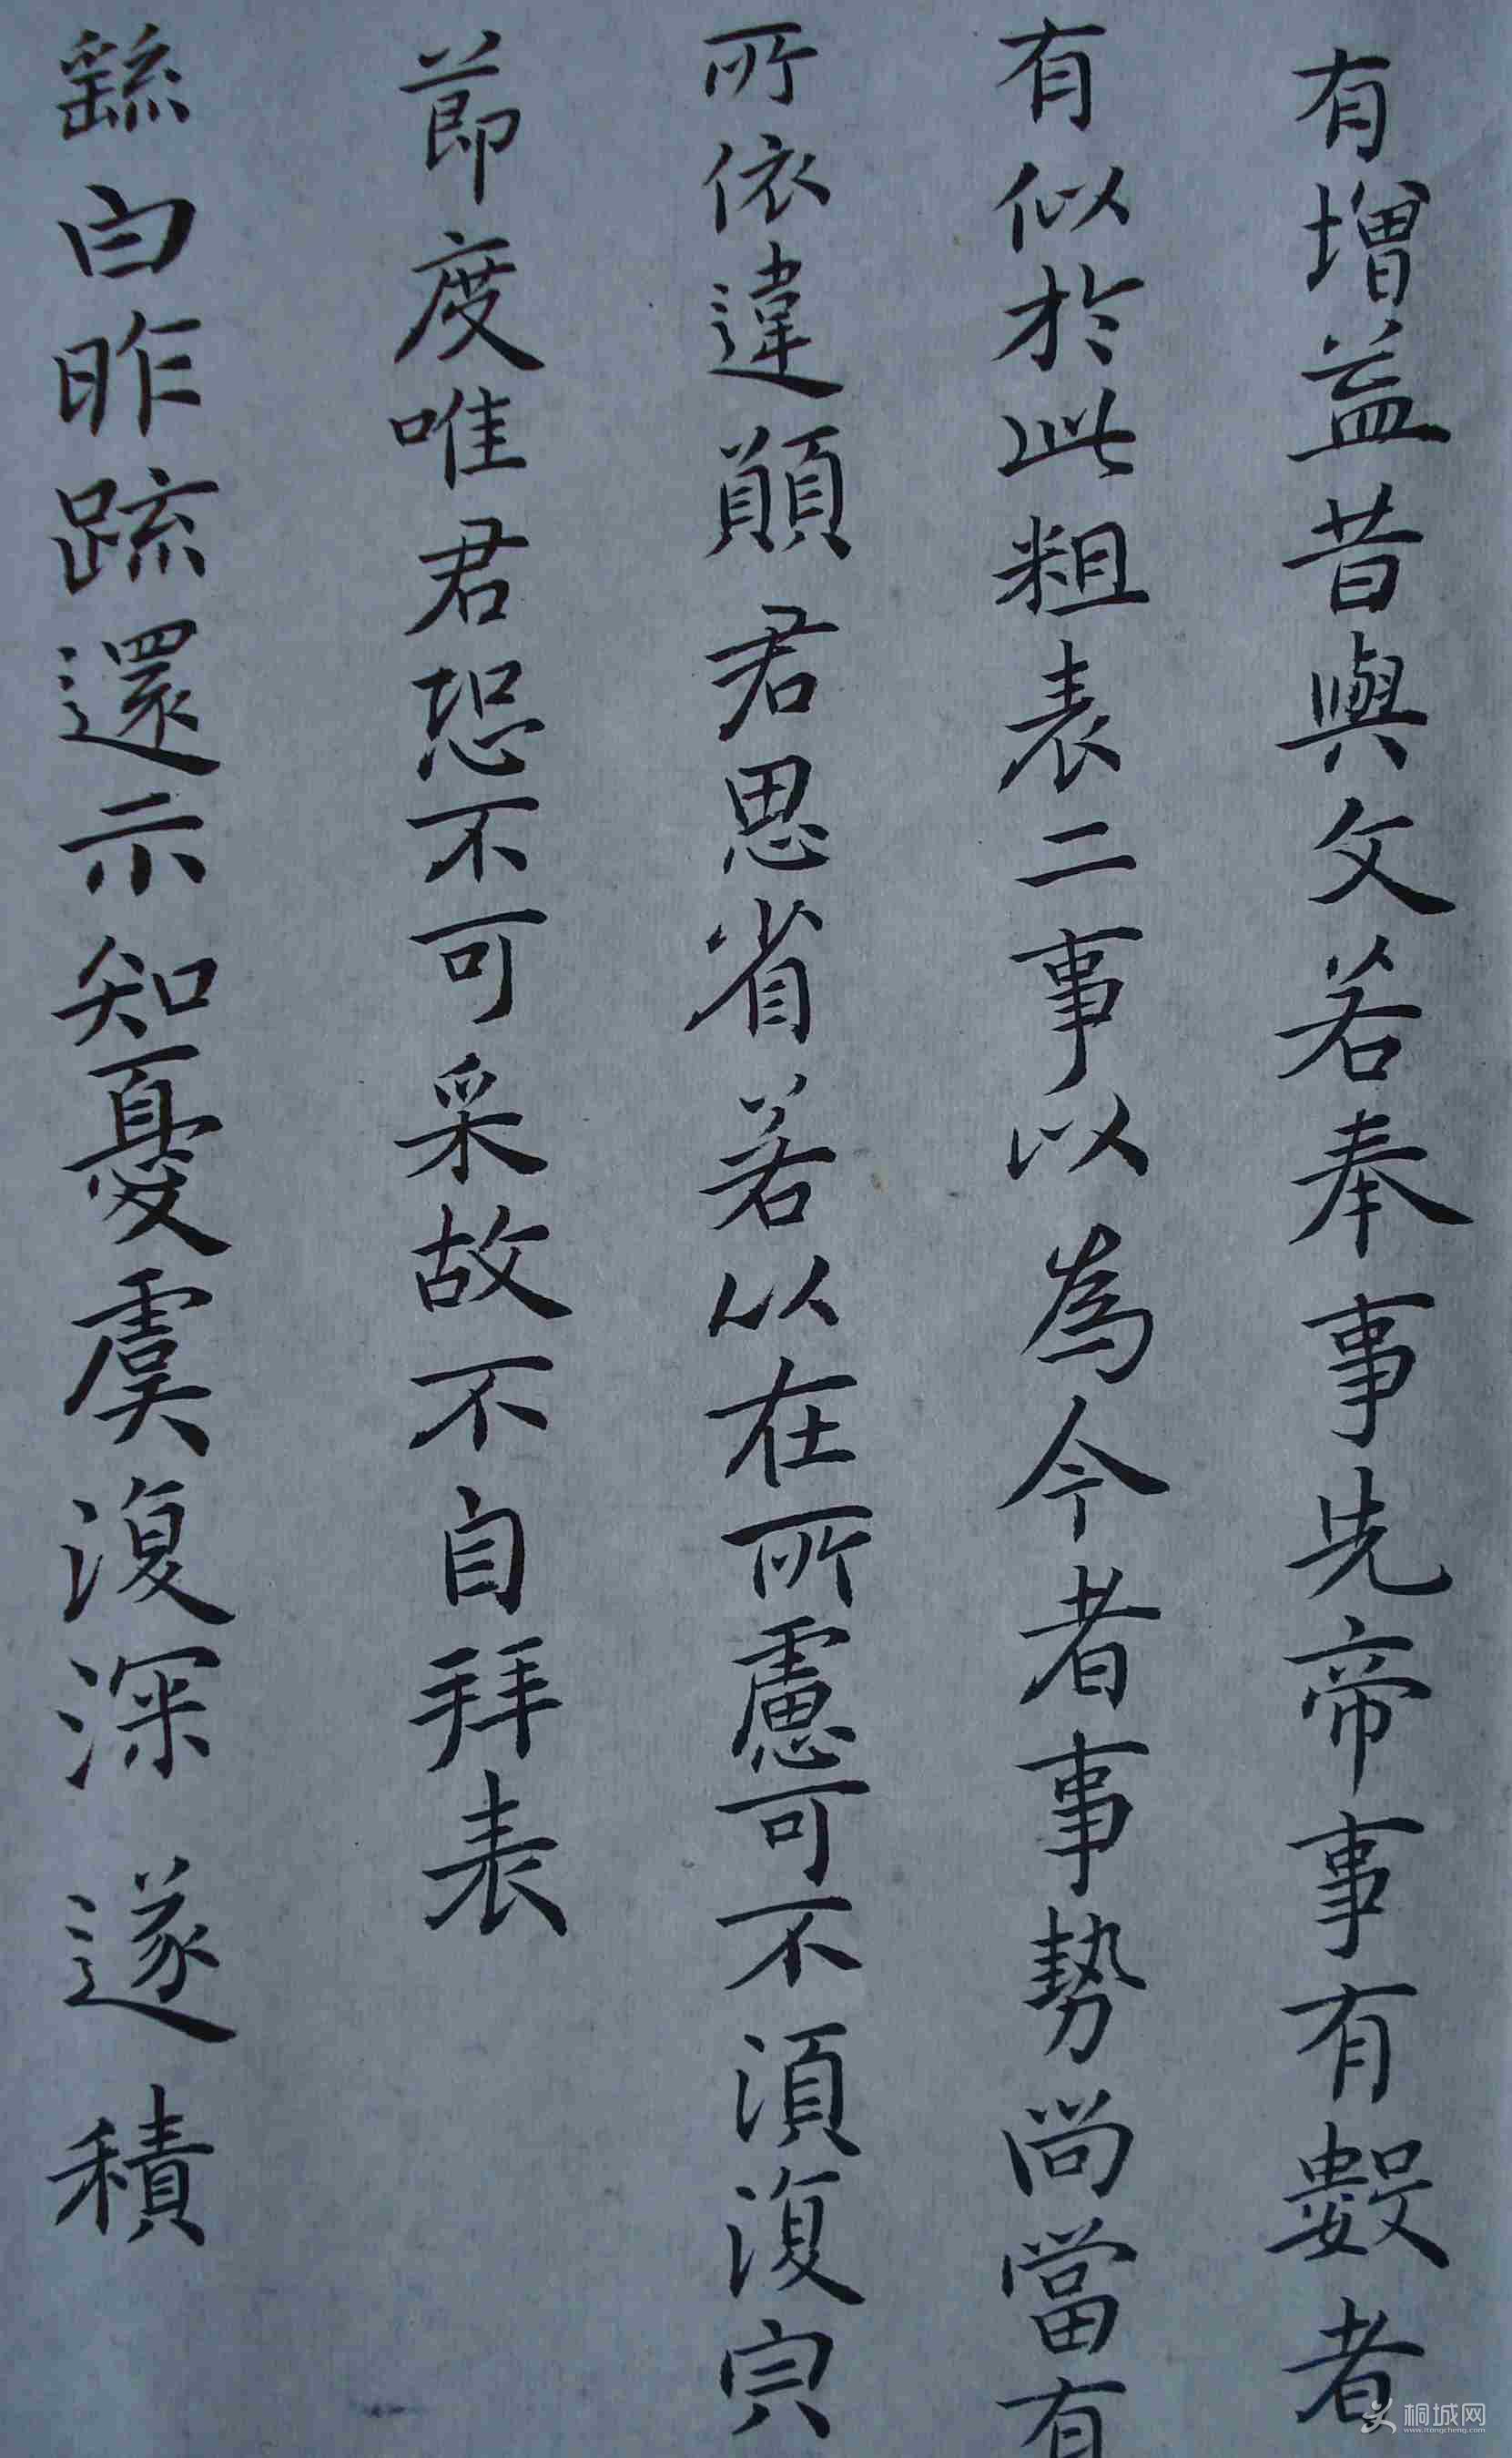 有增益昔與文若奉事先帝事有數者
有似於此粗表二事以為今者事勢尚當有
所依違願君思省若以在所慮可不須復㒰
節度唯君恐不可采故不自拜表
繇白昨疏還示知憂虞復深遂積
桐城网
www.itongcheng.com